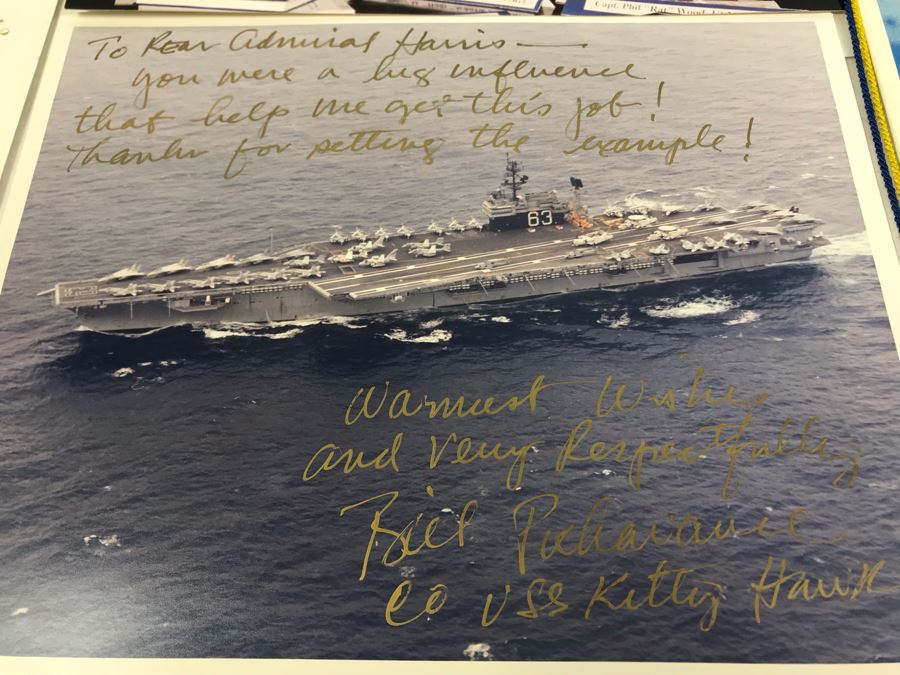 Capt. Phil "Rat" Wood,
To Rear Admiral Harris —
you were a big influence
that help me get this job!
Thanks for setting the example!
63
Warmest Wishes
and Very Respectfully
Bill
CO USS Kitty Hawk